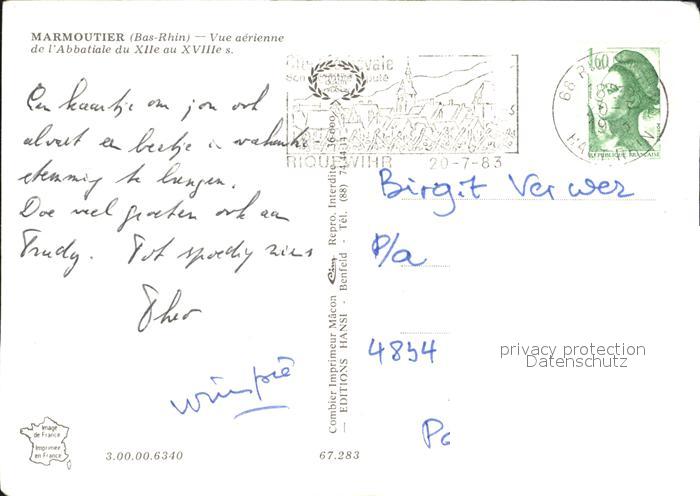 MARMOUTIER (Bas-Rhin) — Vue aérienne
de l'Abbatiale du XIIe au XVIIIe s.
Een kaartje om jou ook
alvast een beetje in vakantie
stemming te brengen.
Doe veel groeten ook aan
Trudy. Tot spoedig ziens
Theo
Image
de France
Imprimée
en France
3.00.00.6340
67.283
Combier Imprimeur Mâcon Cim Repro. Interdite
— EDITIONS HANSI - Benfeld - Tél. (88) 74.44.14
RIQUEWIHR 20-7-83
1,60
REPUBLIQUE FRANÇAISE
68
Birgit Verwer
P/a
4834
privacy protection
Datenschutz